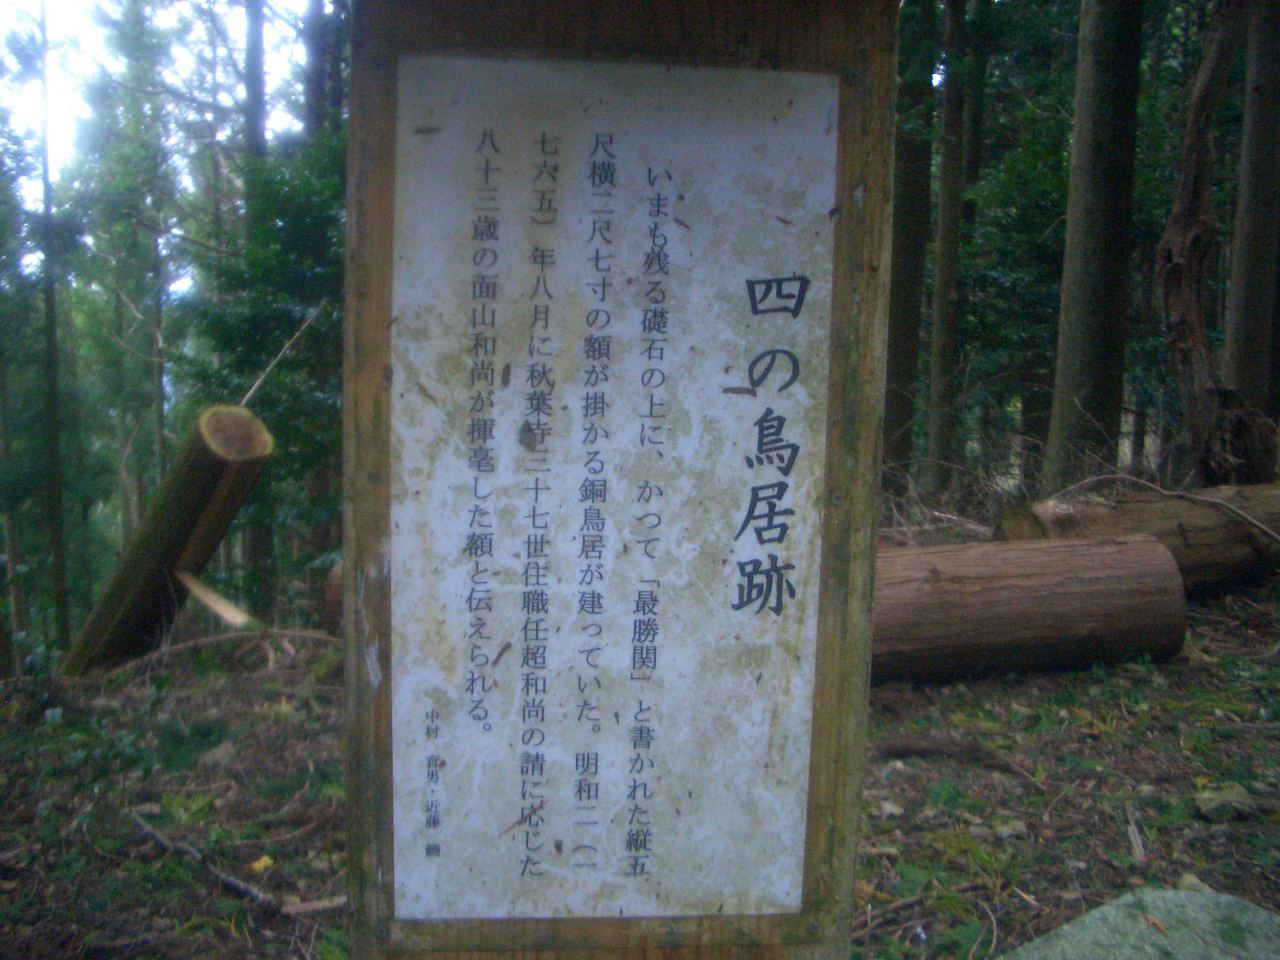 四の鳥居跡
いまも残る礎石の上に、かつて「最勝関」と書かれた縦五
尺横二尺七寸の額が掛かる銅鳥居が建っていた。明和二（一
七六五）年八月に秋葉寺三十七世住職任超和尚の請に応じた
八十三歳の面山和尚が揮毫した額と伝えられる。
中村 男・近藤